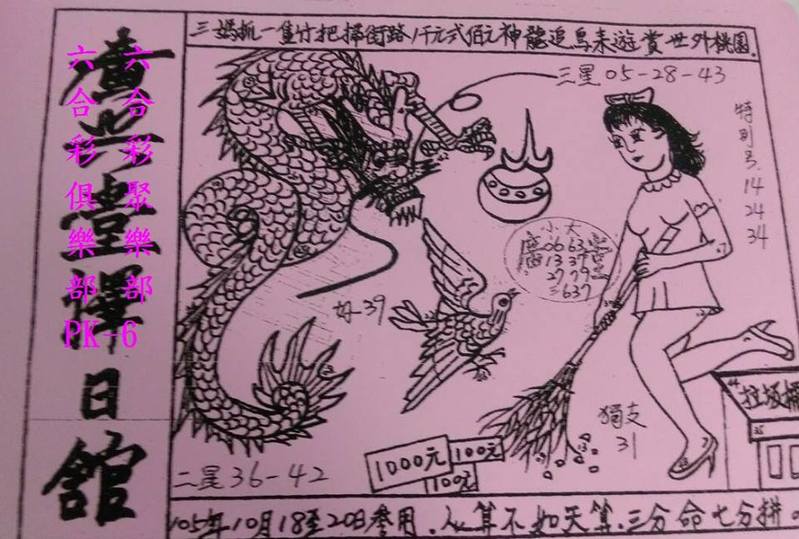 三媽抓一隻竹把掃街路1仟元弍佰元神龍追鳥來遊賞世外桃園.
三星05-28-43
特別号
14
24
34
小 大
06 63
13 37
27 79
637
好39
獨支
31
垃圾桶
1000元
100元
100元
二星36-42
105年10月18至20日參用.人算不如天算.三分命七分拼
擇日館
六合彩俱樂部
六合彩聚樂部
PK-6